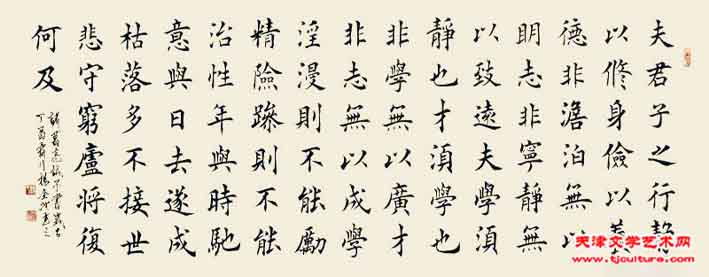 夫君子之行靜
以修身儉以養
德非澹泊無以
明志非寧靜無
以致遠夫學須
靜也才須學也
非學無以廣才
非志無以成學
淫漫則不能勵
精險躁則不能
治性年與時馳
意與日去遂成
枯落多不接世
悲守窮廬將復
何及
諸葛亮誡子書歲在
天津文学艺术网
www.tjculture.com